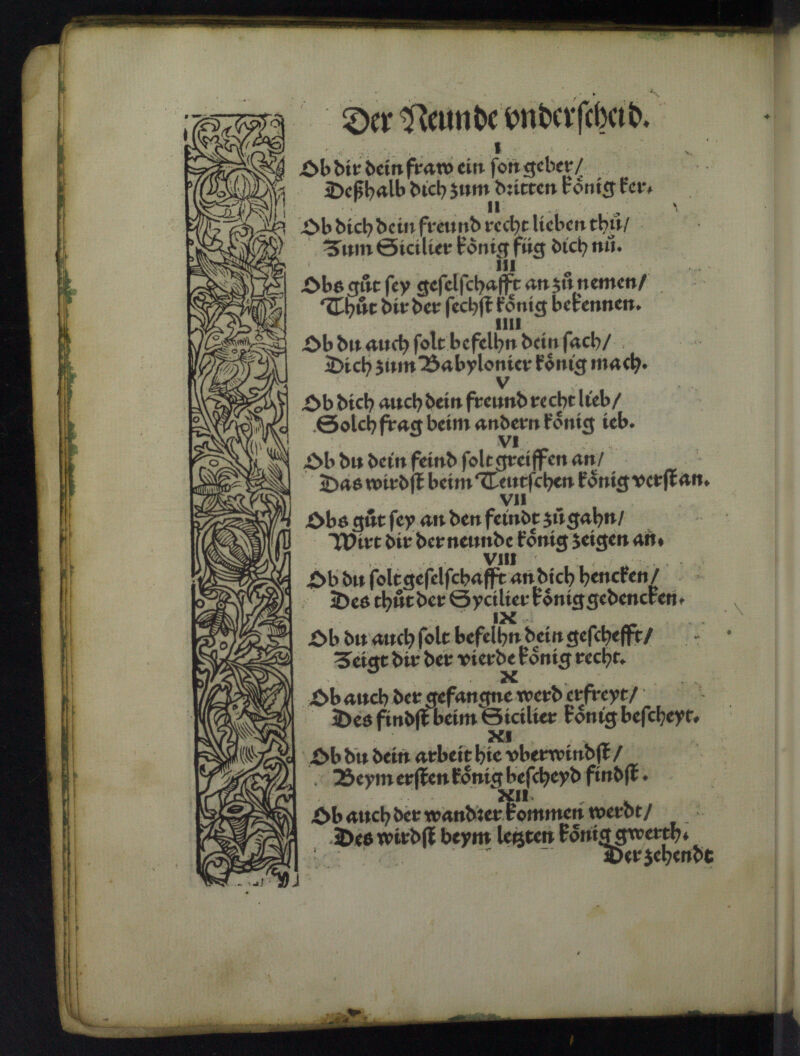 Der Neunde vnderscheid.
I
Ob dir dein fraw ein son geber/
Deßhalb dich zum dritten König ker.
II
Ob dich dein freund recht lieben thů/
Zum Sicilier König füg dich nů.
III
Obs gůt sey geselschafft an zů nemen/
Thůt dir der sechst König bekennen.
IIII
Ob du auch solt befelhn dein sach/
Dich zum Babylonier König mach.
V
Ob dich auch dein freund recht lieb/
Solch frag beim andern König ieb.
VI
Ob du dein feind solt greiffen an/
Das wirdst beim Teutschen König verstan.
VII
Obs gůt sey an den feindt zů gahn/
Wirt dir der neunde König zeigen an.
VIII
Ob du solt geselschafft an dich hencken/
Des thůt der Sycilier König gedencken.
IX
Ob du auch solt befelhn dein geschefft/
Zeigt dir der vierde König recht.
X
Ob auch der gefangne werd erfreyt/
Des findst beim Sicilier König bescheyt.
XI
Ob du dein arbeit hie vberwindst/
Beym ersten König bescheyd findst.
XII
Ob auch der wandrer kommen werdt/
Des wirdst beym letzten König gwerth.
Der zehendt